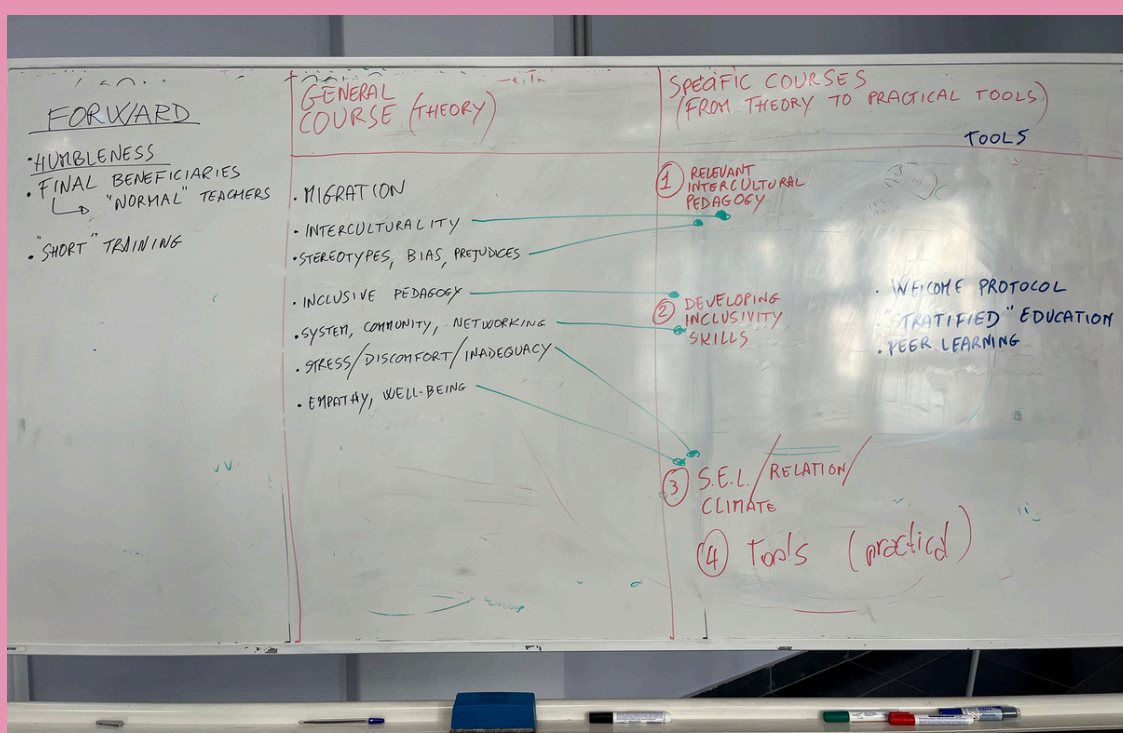 FORWARD
• HUMBLENESS
• FINAL BENEFICIARIES
"NORMAL" TEACHERS
• "SHORT" TRAINING
GENERAL
COURSE (THEORY)
• MIGRATION
• INTERCULTURALITY
• STEREOTYPES, BIAS, PREJUDICES
• INCLUSIVE PEDAGOGY
• SYSTEM, COMMUNITY, NETWORKING
• STRESS/DISCOMFORT/INADEQUACY
• EMPATHY, WELL-BEING
SPECIFIC COURSES
(FROM THEORY TO PRACTICAL TOOLS)
TOOLS
1 RELEVANT
INTERCULTURAL
PEDAGOGY
2 DEVELOPING
INCLUSIVITY
SKILLS
• WELCOME PROTOCOL
• "STRATIFIED" EDUCATION
• PEER LEARNING
3 S.E.L./RELATION/
CLIMATE
4 Tools (practical)